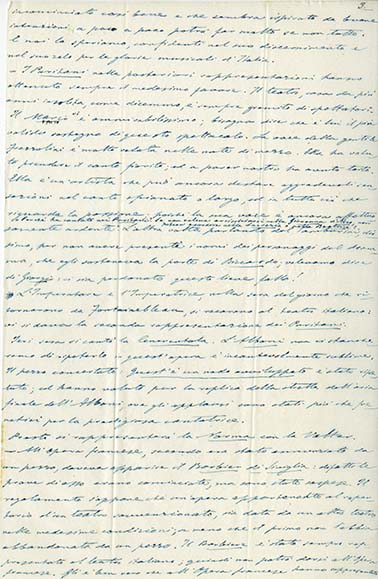 3.
incominciato così bene e che sembra ispirato da buone
intenzioni, a poco a poco potrà far molto se non tutto.
Io noi lo speriamo, confidenti nel suo discernimento e
nel suo zelo per la gloria musicali d'Italia.
— I Puritani nelle posteriori rappresentazioni hanno
ottenuto sempre il medesimo favore. Il teatro, cosa da più
anni insolita, come dicemmo, è sempre gremito di spettatori.
Il Mario è ammirabilissimo; bisogna dire che è lui il più
valido sostegno di questo spettacolo. La voce della gentile
Frezzolini è molto velata nelle note di mezzo. Ella ha volu-
to prendere il canto fiorito, ed a parer nostro ha avuto torto.
Ella è un'artista che può ancora destare aggradevoli sen-
sazioni nel canto spianato e largo, ed in tutto ciò che
riguarda la passione, poiché la sua voce è ancora
L'altra
sino, per non avere presenti i nomi dei personaggi del dram-
ma, che egli sosteneva la parte di Riccardo, volevamo dire
di Giorgio: ci sia perdonato questo lieve fallo!
L'Imperatore e l'Imperatrice, nella sera del giorno che ri-
tornarono da Fontainebleau, si recarono al teatro italiano:
vi si dava la seconda rappresentazione dei Puritani.
Ieri sera si cantò la Cenerentola. L'Alboni non ci stanche-
remo di ripeterlo, quest'opera è inesauribilmente sublime.
Il pezzo concertato Quest'è un nodo avviluppato è stato ripe-
tuto; ed hanno voluto per la replica della stretta dell'aria
finale dell'Alboni, con gli applausi sono stati più che fre-
netici per la prodigiosa cantatrice.
Presto si rappresenterà la Norma con la
All'opera francese, secondo era stato annunciato da
un pezzo, doveva apparire il Barbiere di Siviglia: difatti le
prove di esso erano cominciate, ma sono state sospese. Il
regolamento impone che un'opera appartenendo al reper-
torio d'un teatro sovvenzionato, sia dato da un altro teatro
nelle medesime condizioni, a meno che il primo non l'abbia
abbandonato da un pezzo. Il Barbiere è stato sempre rap-
presentato al teatro italiano; quindi non potrà darsi all'Opera
francese. Gli è ben vero che all'Opera francese hanno rappresentato